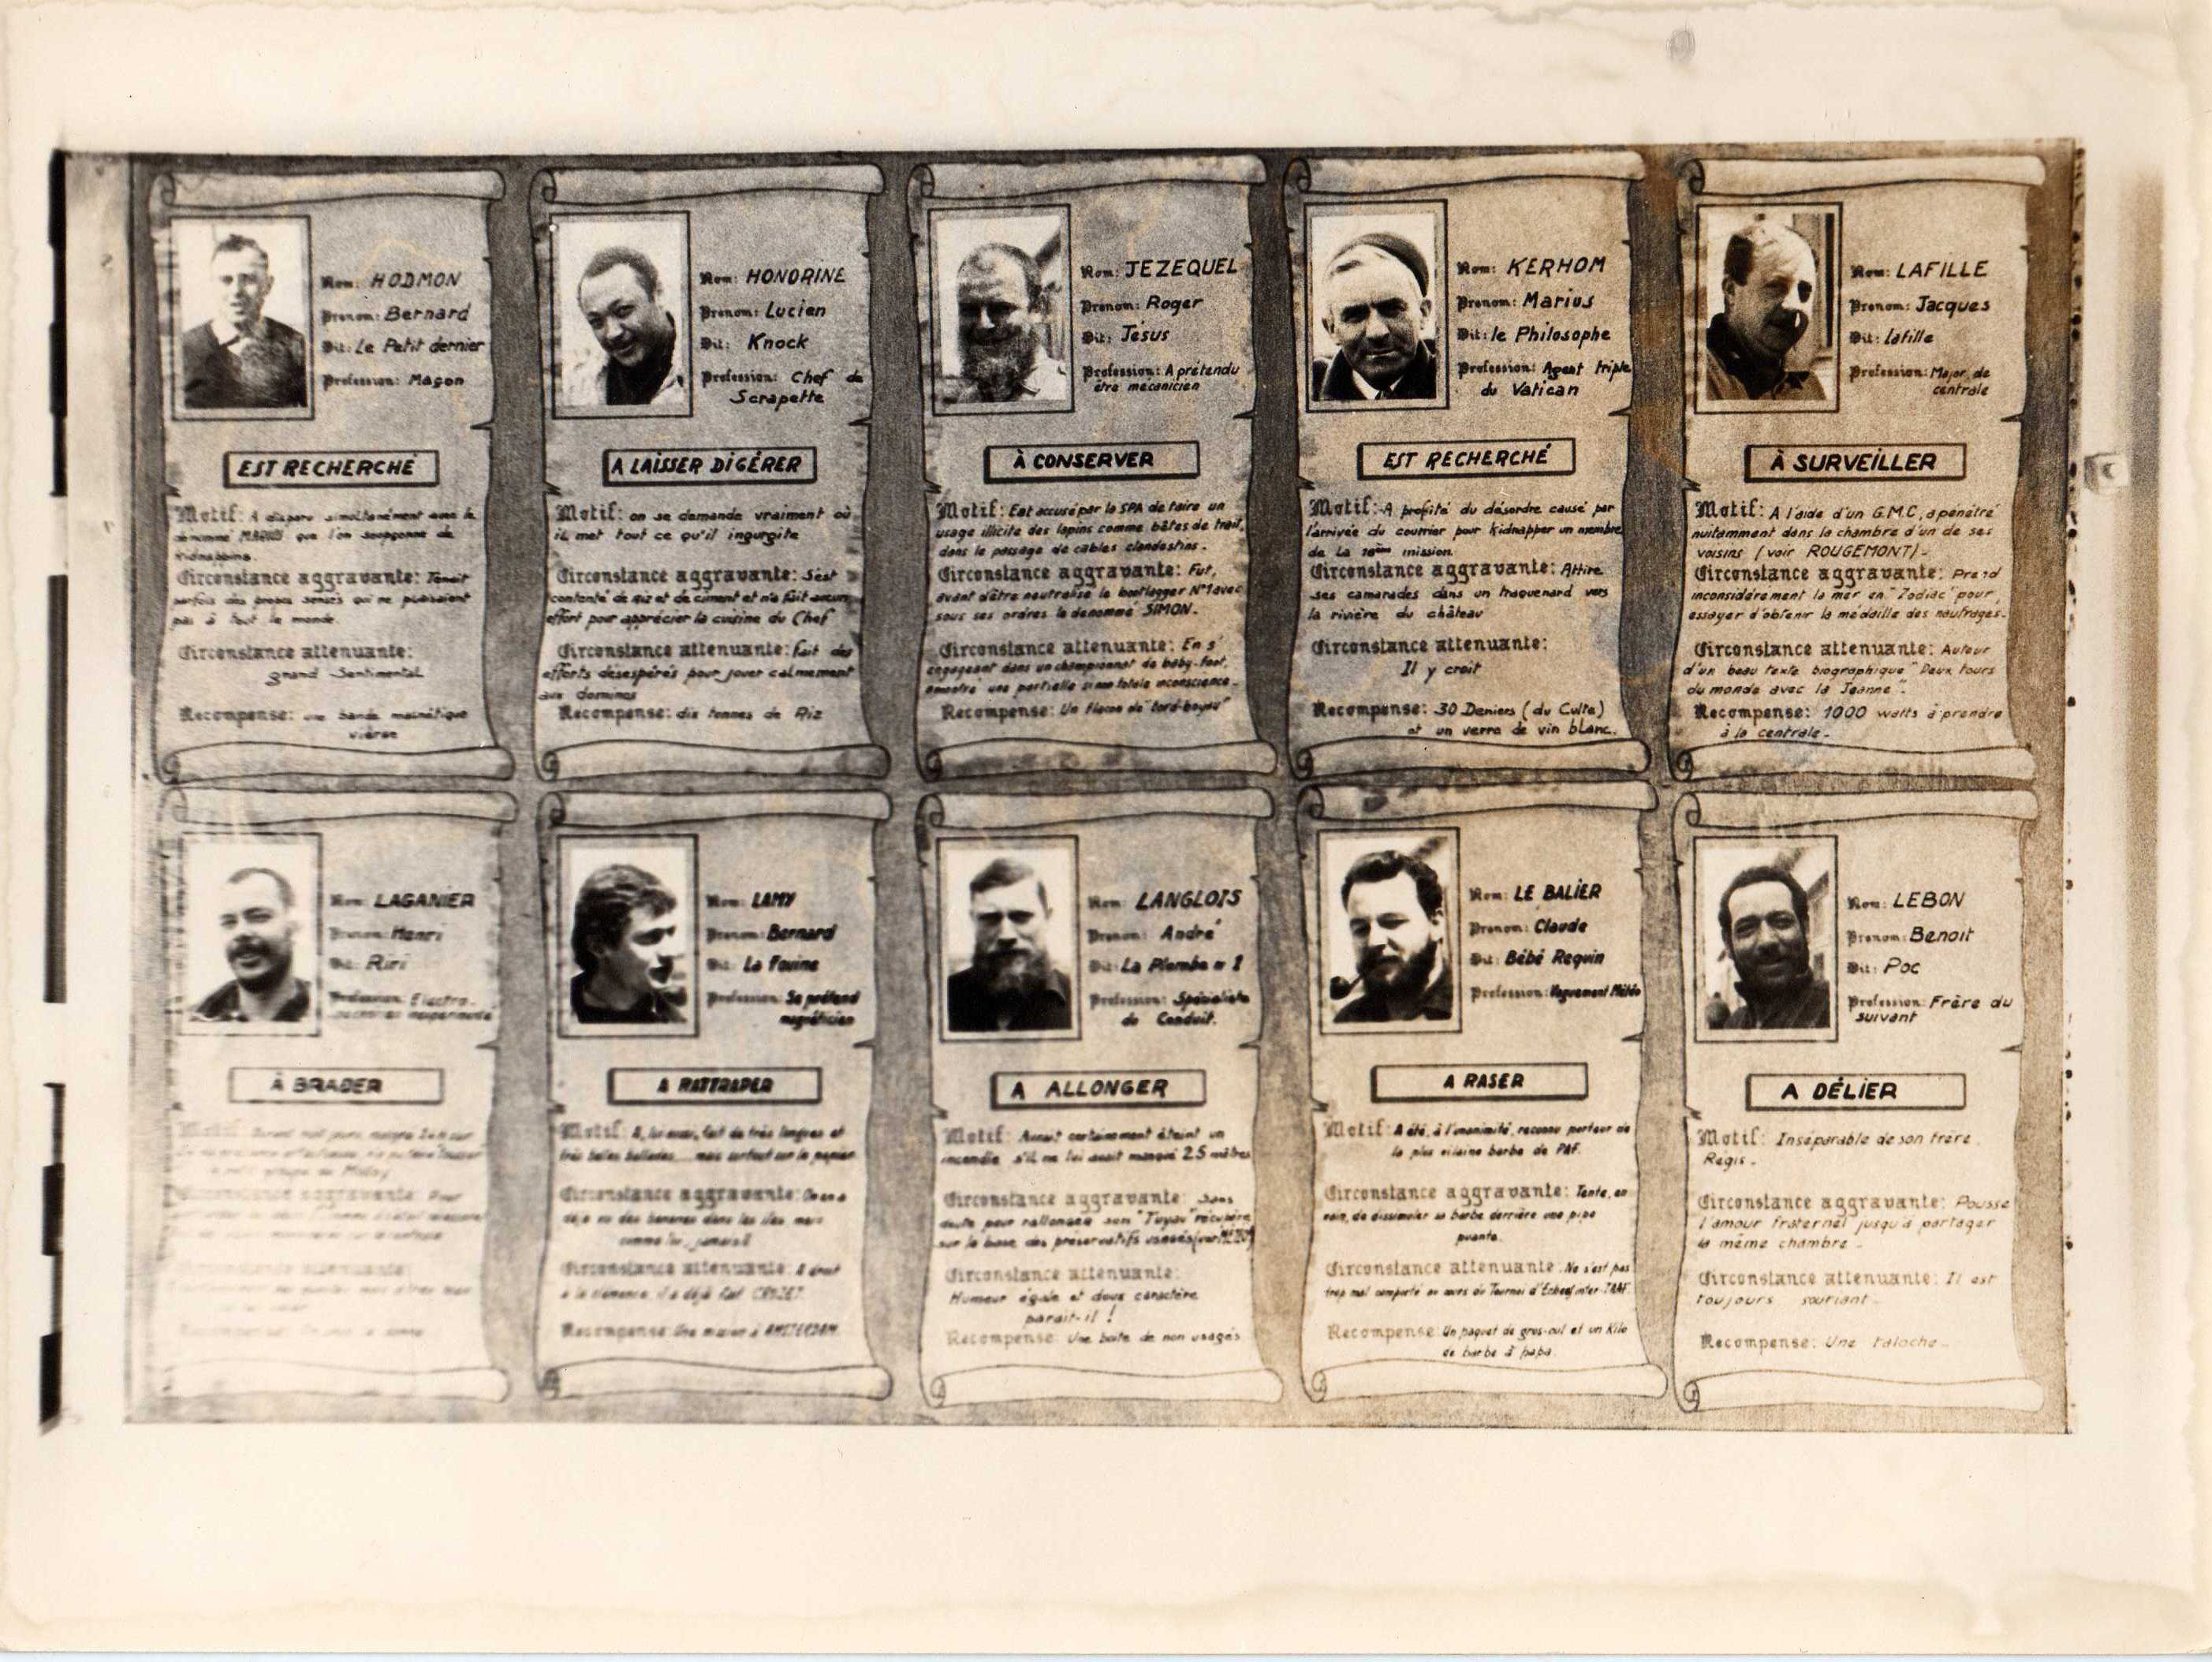 Nom: HODMON
Prenom: Bernard
Dit: Le Petit dernier
Profession: Maçon
EST RECHERCHÉ
Motif: A disparu simultanément avec le
dénommé que l'on soupçonne de
Kidnapping.
Circonstance aggravante: Tenait
parfois des propos sensés qui ne plaisaient
pas à tout le monde.
Circonstance attenuante:
grand Sentimental
Recompense: une bande magnétique
vierge
Nom: HONORINE
Prenom: Lucien
Dit: Knock
Profession: Chef de
Scrapette
A LAISSER DIGÉRER
Motif: on se demande vraiment où
il met tout ce qu'il ingurgite
Circonstance aggravante: S'est
contenté de riz et de ciment et n'a fait aucun
effort pour apprécier la cuisine du Chef
Circonstance attenuante: fait des
efforts désespérés pour jouer calmement
aux dominos
Recompense: dix tonnes de Riz
Nom: JEZEQUEL
Prenom: Roger
Dit: Jésus
Profession: A prétendu
être mécanicien
À CONSERVER
Motif: Est accusé par la SPA de faire un
usage illicite des lapins comme bêtes de trait,
dans le passage de cables clandestins.
Circonstance aggravante: Fut,
avant d'être neutralisé le bootlegger N°1 avec
sous ses ordres le dénommé SIMON.
Circonstance attenuante: En s'
engageant dans un championnat de baby-foot,
montre une partielle sinon totale inconscience.
Recompense: Un flacon de "tord-boyau"
Nom: KERHOM
Prenom: Marius
Dit: le Philosophe
Profession: Agent triple
du Vatican
EST RECHERCHÉ
Motif: A profité du désordre causé par
l'arrivée du courrier pour kidnapper un membre
de la mission.
Circonstance aggravante: Attire
ses camarades dans un traquenard vers
la rivière du château
Circonstance attenuante:
Il y croit
Recompense: 30 Deniers (du Culte)
et un verre de vin blanc.
Nom: LAFILLE
Prenom: Jacques
Dit: lafille
Profession: Major de
centrale
À SURVEILLER
Motif: A l'aide d'un G.M.C, a pénétré
nuitamment dans la chambre d'un de ses
voisins (voir ROUGEMONT).
Circonstance aggravante: Prend
inconsidérement la mer en "Zodiac" pour
essayer d'obtenir la médaille des naufragés.
Circonstance attenuante: Auteur
d'un beau texte biographique "Deux tours
du monde avec la Jeanne".
Recompense: 1000 watts à prendre
à la centrale.
Nom: LAGANIER
Prenom: Henri
Dit: Riri
Profession: Electro-
À BRADER
Motif:
Circonstance aggravante: Pour
Circonstance attenuante:
Recompense:
Nom: LAMY
Prenom: Bernard
Dit: La Fouine
Profession: Se prétend
magnéticien
A RATTRAPER
Motif: A, lui aussi, fait de très longues et
très belles ballades... mais surtout sur le papier
Circonstance aggravante: On en a
déjà vu des bananes dans les iles mais
comme lui, jamais!
Circonstance attenuante: A droit
à la clémence, il a déjà fait CROZET.
Recompense: Une mission à AMSTERDAM
Nom: LANGLOIS
Prenom: André
Dit: La Plombe n°1
Profession: Spécialiste
du Conduit.
A ALLONGER
Motif: Aurait certainement éteint un
incendie s'il ne lui avait manqué 25 mètres
Circonstance aggravante: Sans
doute pour rallonger son "Tuyau" récupère
sur la base des préservatifs usagés
Circonstance attenuante:
Humeur égale et doux caractère
parait-il!
Recompense: Une boite de non usagés
Nom: LE BALIER
Prenom: Claude
Dit: Bébé Requin
Profession: Vaguement Météo
A RASER
Motif: A été, à l'unanimité, reconnu porteur de
la plus vilaine barbe de PAF.
Circonstance aggravante: Tente, en
vain, de dissimuler sa barbe derrière une pipe
puante.
Circonstance attenuante: Ne s'est pas
trop mal comporté au cours du Tournoi d'Echecs inter-TAAF.
Recompense: Un paquet de gros-cul et un Kilo
de barbe à papa.
Nom: LEBON
Prenom: Benoit
Dit: Poc
Profession: Frère du
suivant
A DÉLIER
Motif: Inséparable de son frère
Régis.
Circonstance aggravante: Pousse
l'amour fraternel jusqu'à partager
la même chambre.
Circonstance attenuante: Il est
toujours souriant.
Recompense: Une taloche.